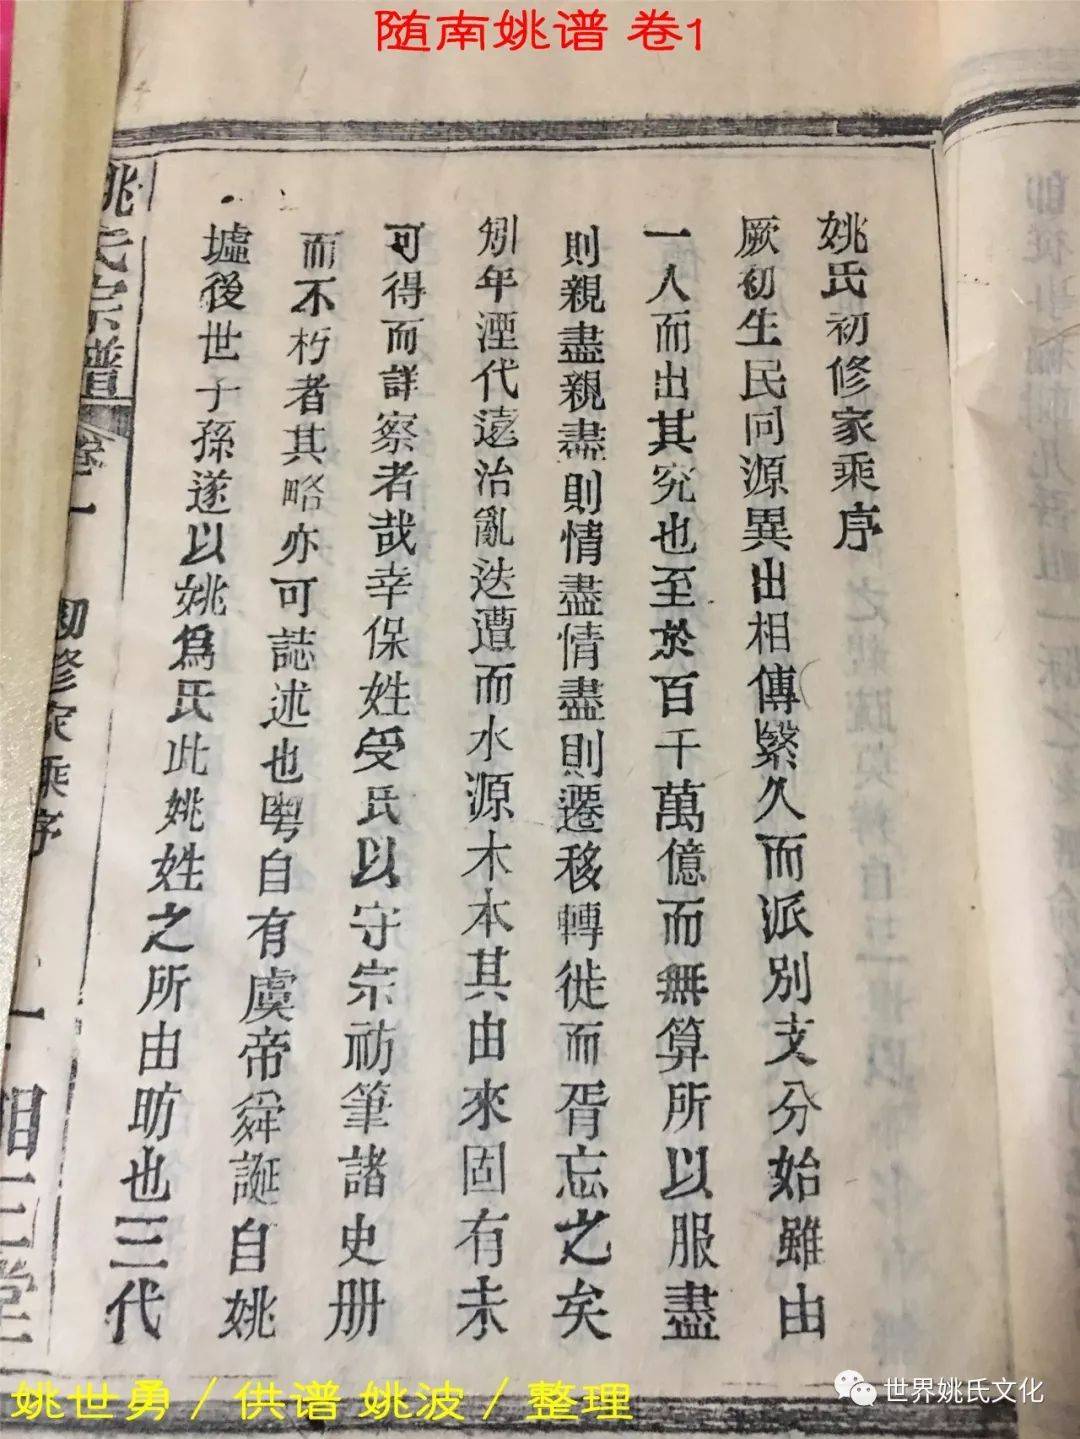 随南姚谱 卷1
姚氏初修家乘序
厥初生民同源異出相傳緊久而派別支分始雖由
一人而出其究也至於百千萬億而無算所以服盡
則親盡親盡則情盡情盡則遷移轉徙而胥忘之矣
矧年湮代遠治亂迭遭而水源木本其由來固有未
可得而詳察者哉幸保姓受氏以守宗祊筆諸史册
而不朽者其略亦可誌述也粤自有虞帝舜誕自姚
墟後世子孫遂以姚爲氏此姚姓之所由昉也三代
姚氏宗譜 卷一 初修家乘序 一
姚世勇 / 供谱 姚波 / 整理
世界姚氏文化